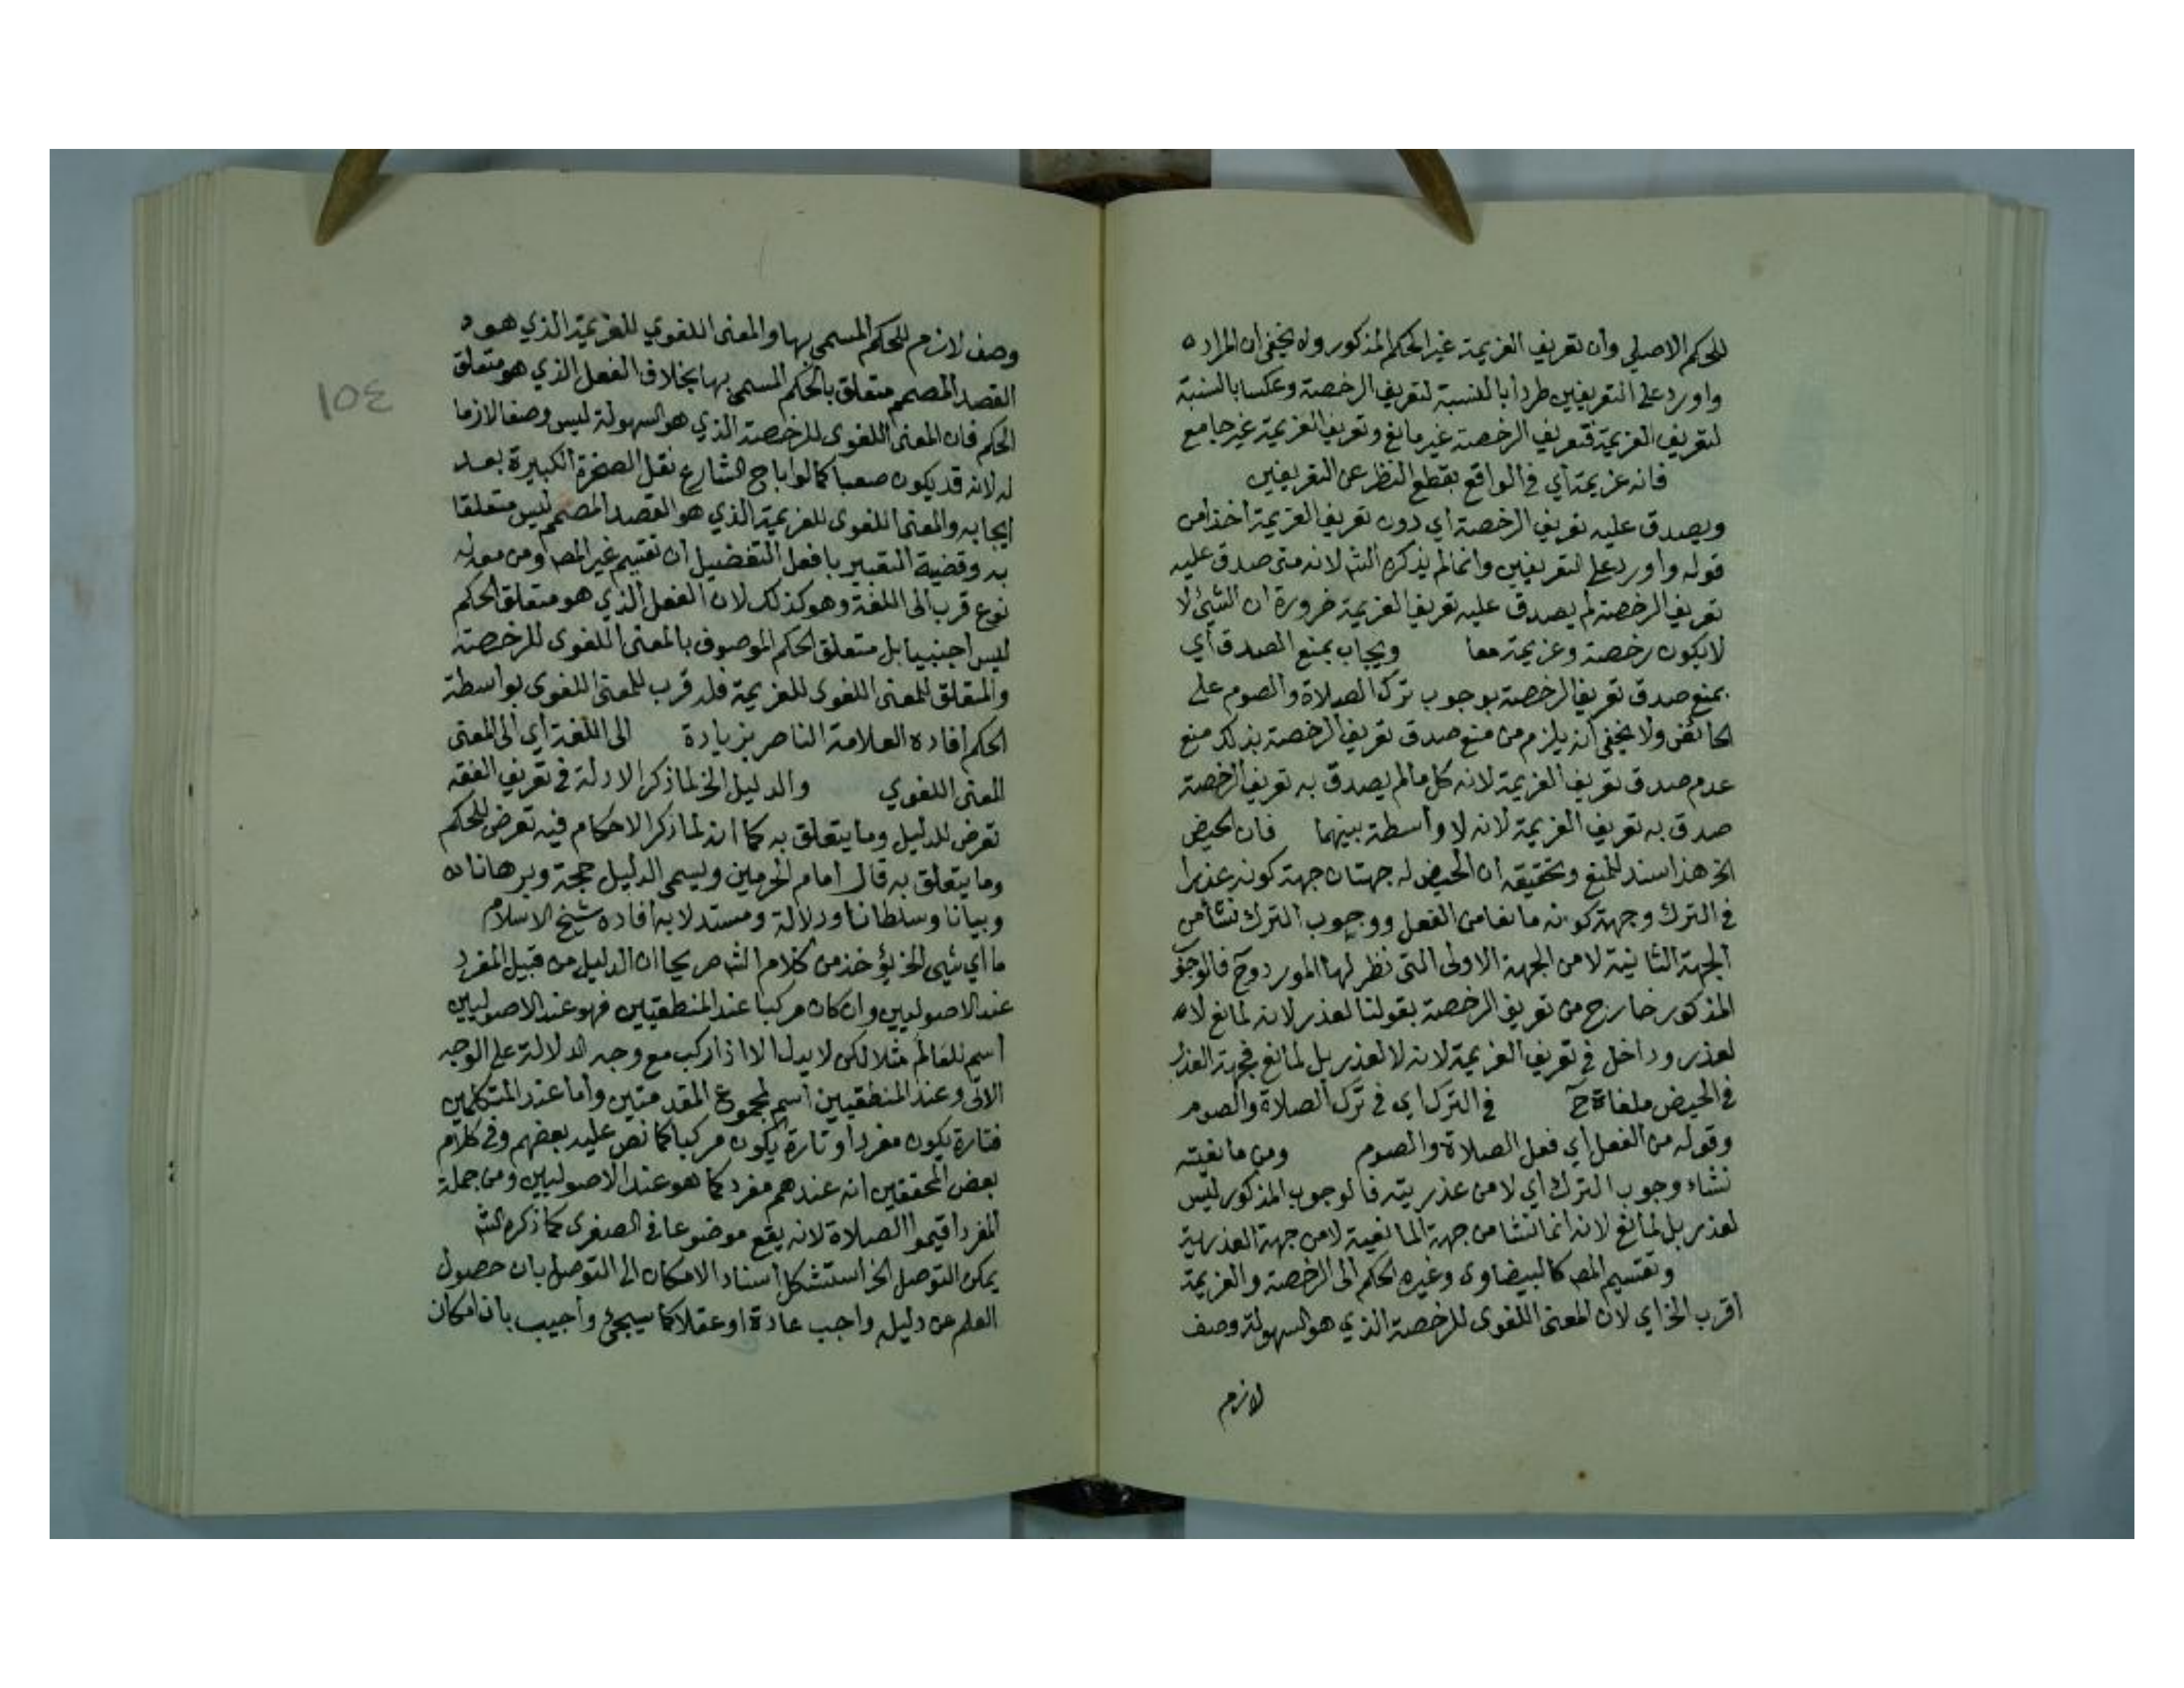 للحكم الاصلي وان تعريف العزيمة غير الحكم المذكور ولا يخفى ان المراد ه
واورد على التعريفين طردا بالنسبة لتعريف الرخصة وعكسا بالنسبة
لتعريف العزيمة فتعريف الرخصة غير مانع وتعريف العزيمة غير جامع
فانه عزيمة أي في الواقع بقطع النظر عن التعريفين
ويصدق عليه تعريف الرخصة أي دون تعريف العزيمة أخذا من
قوله وأورد على التعريفين وانما لم يذكره الش لانه متى صدق عليه
تعريف الرخصة لم يصدق عليه تعريف العزيمة ضرورة ان الشيئ لا
لا يكون رخصة وعزيمة معا ويجاب بمنع الصدق أي
بمنع صدق تعريف الرخصة بوجوب ترك الصلاة والصوم على
الحائض ولا يخفى انه يلزم من منع صدق تعريف الرخصة بذلك منع
عدم صدق تعريف العزيمة لانه كل ما لم يصدق به تعريف الرخصة
صدق به تعريف العزيمة لانه لا واسطة بينهما فان الحيض
الخ هذا سند للمنع وتحقيقه ان الحيض له جهتان جهة كونه عذرا
في الترك وجهة كونه مانعا من الفعل ووجوب الترك نشأ من
الجهة الثانية لا من الجهة الاولى التي نظر لها المورد وح فالوجو
المذكور خارج من تعريف الرخصة بقولنا لعذر لانه لمانع لا ه
لعذر وداخل في تعريف العزيمة لانه لا لعذر بل لمانع فجهة العذر
في الحيض ملغاة ح في الترك أي في ترك الصلاة والصوم
وقوله من الفعل أي فعل الصلاة والصوم ومن مانعيته
نشاء وجوب الترك أي لا من عذريته فالوجوب المذكور ليس
لعذر بل لمانع لانه انما نشا من جهة المانعية لا من جهة العذرية
وتقسيم المص كالبيضاوى وغيره الحكم الى الرخصة والعزيمة
أقرب الخ اي لان المعنى اللغوى للرخصة الذي هو السهولة وصف
لازم
١٥٤
وصف لازم للحكم المسمى بها والمعنى اللغوي للعزيمة الذي هو ه
القصد المصمم متعلق بالحكم المسمى بها بخلاف الفعل الذي هو متعلق
الحكم فان المعنى اللغوى للرخصة الذي هو السهولة ليس وصفا لازما
له لانه قد يكون صعبا كما لو أباح الشارع نقل الصخرة الكبيرة بعد
ايجابه والمعنى اللغوى للعزيمة الذي هو القصد المصمم ليس متعلقا
به وقضية التعبير بافعل التفضيل ان تقسيم غير المص ومن معه له
نوع قرب الى اللغة وهو كذلك لان الفعل الذي هو متعلق الحكم
ليس أجنبيا بل متعلق الحكم الموصوف بالمعنى اللغوى للرخصة
والمتعلق للمعنى اللغوى للعزيمة فله قرب للمعنى اللغوى بواسطة
الحكم أفاده العلامة الناصر بزيادة الى اللغة أي الى المعنى
المعنى اللغوي والدليل الخ لما ذكر الادلة في تعريف الفقه
تعرض للدليل وما يتعلق به كما انه لما ذكر الاحكام فيه تعرض للحكم
وما يتعلق به قال امام الحرمين ويسمى الدليل حجة وبرهانا ه
وبيانا وسلطانا ودلالة ومستدلا به أفاده شيخ الاسلام
ما أي شيئ الخ يؤخذ من كلام الش صريحا ان الدليل من قبيل المفرد
عند الاصوليين وان كان مركبا عند المنطقيين فهو عند الاصوليين
أسم للعالم مثلا لكن لا يدل الا اذا ركب مع وجه الدلالة على الوجه
الاتى وعند المنطقيين أسم لمجموع المقدمتين وأما عند المتكلمين
فتارة يكون مفردا وتارة يكون مركبا كما نص عليه بعضهم وفي كلام
بعض المحققين انه عندهم مفرد كما هو عند الاصوليين ومن جملة
المفرد أقيموا الصلاة لانه يقع موضوعا في الصغرى كما ذكره الش
يمكن التوصل الخ استشكل أسناد الامكان الى التوصل بان حصول
العلم عن دليله واجب عادة او عقلا كما سيجئ وأجيب بان امكان